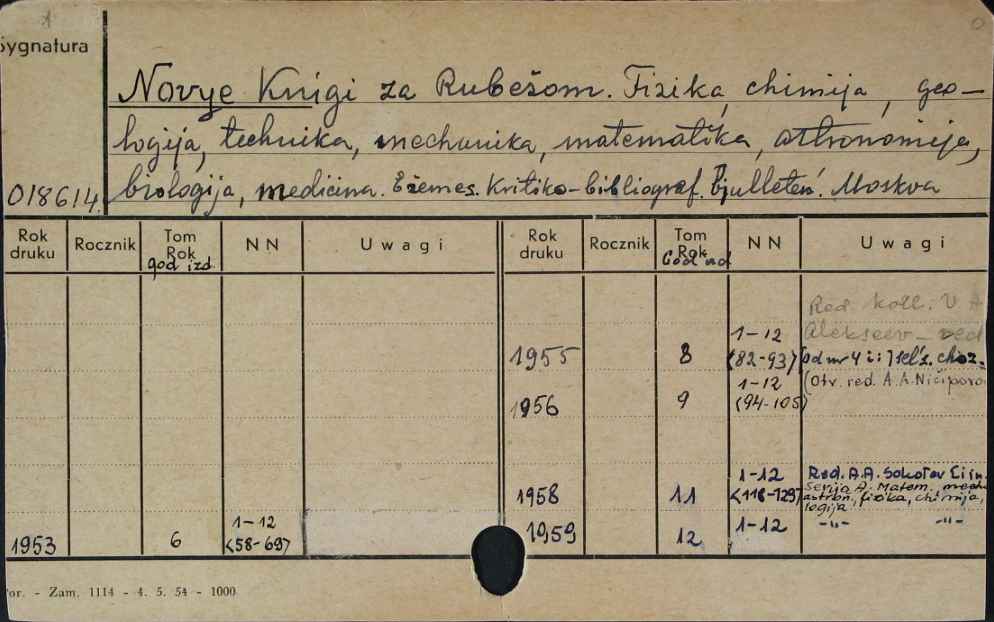 Sygnatura
Novye Knigi za Rubežom. Fizika, chimija, geo-
logija, technika, mechanika, matematika, astronomija,
018614. biologija, medicina. Ežemes. Kritiko-bibliograf. bjulleteń. Moskva
Rok druku Rocznik Tom Rok god izd NN Uwagi Rok druku Rocznik Tom Rok NN Uwagi
Red. koll. V A
1-12 Alekseev - red
1955 8 (82-93) [od nr 4 i: ] sel's. choz.
1-12 (Otv. red. A.A. Ničiporo
1956 9 (94-105)
1-12 Red. A.A. Sokolov [i in.
1958 11 <118-129> Serija A. Matem. mech.
astron., fizika, chimija,
logija
1959 12 1-12 -"- -"-
1-12
1953 6 <58-69>
or. - Zam. 1114 - 4. 5. 54 - 1000